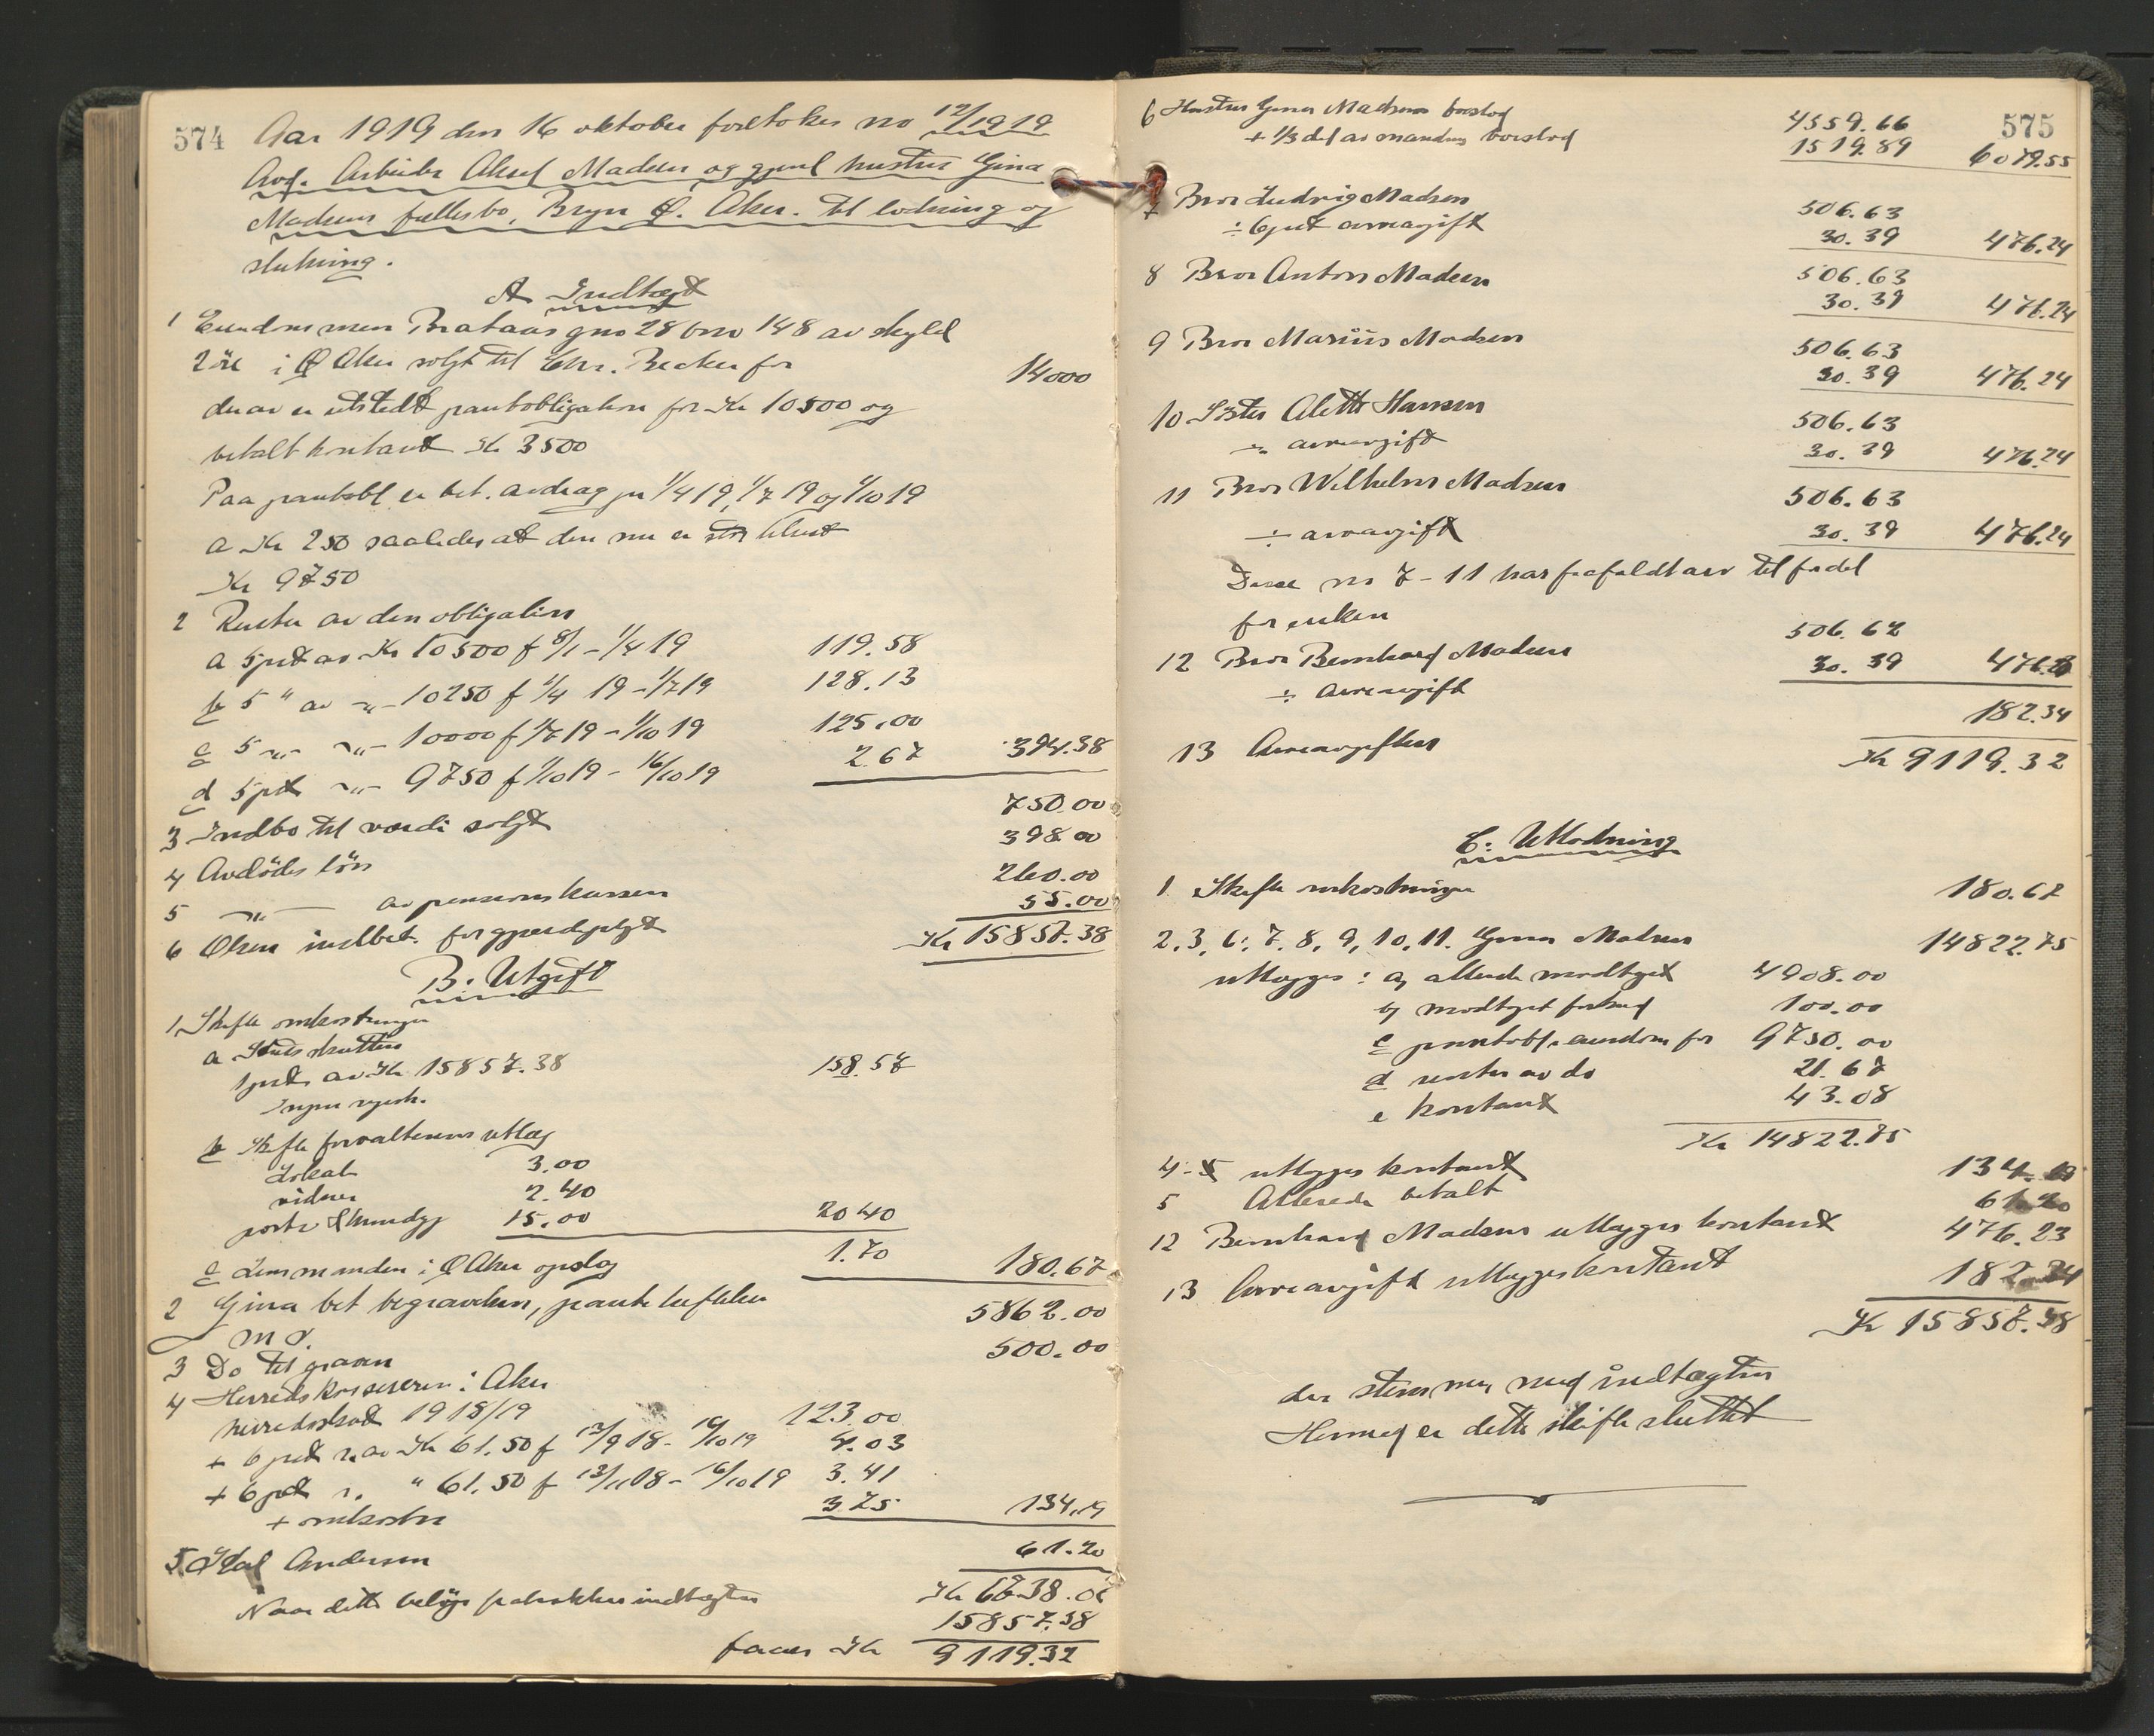 574
Aar 1919 den 16 oktober foretokes no 12/1919
Avd. Arbeider Aksel Madsen og gjenl hustru Gina
Madsens fællesbo, Bryn Ø. Aker. til lodning og
slutning.
A Indtægt
1 Eiendommen Brataas gno 28 bno 148 av skyld
2 øre i Ø Aker solgt til Chr. Becker for 14000
derav er utstedt pantobligation for Kr 10500 og
betalt kontant Kr 3500
Paa pantobl er bet. avdrag pr 1/4 19, 1/7 19 og 1/10 19
a Kr 250 saaledes at den nu er
Kr 9750
2 Renter av den obligation
a 5 pct av Kr 10500 f 8/1 - 1/4 19 119.58
b 5 " av -"- 10250 f 1/4 19 - 1/7 19 128.13
c 5 -"- -"- 10000 f 1/7 19 - 1/10 19 125.00
d 5 pct -"- 9750 f 1/10 19 - 16/10 19 2.67 394.38
3 Indbo til værdi solgt 750.00
4 Avdødes løn 398.00
5 -"- av pensionskassen 260.00
6 Olsen indbet. for 55.00
Kr 15857.38
B: Utgift
1 Skifte omkostninger
a
1 pct av Kr 15857.38 158.57
Ingen
b Skifte forvalterens utlæg
Lokale 3.00
vidner 2.40
porto & kundgj 15.00 20 40
c Lensmanden i Ø Aker opslag 1.70 180.67
2 Gina bet begravelsen, panteheftelser 5862.00
m v.
3 Do til graven 500.00
4 Herredskassereren i Aker
herredsskat 1918/19 123.00
+ 6 pct r. av Kr 61.50 f 13/9 18 - 16/10 19 4.03
+ 6 pct r. " 61.50 f 13/11 18 - 16/10 19 3.41
+ omkostn 3.75 134.19
5 Andersen 61.20
Kr 6738.06
Naar dette beløp fratrækkes indtægten 15857.38
faaes Kr 9119.32
575
6 Hustru Gina Madsens boeslod 4559.66
+ 1/3 del av mandens boeslod 1519.89 6079.55
7 Bror Ludvig Madsen 506.63
÷ 6 pct arveavgift 30.39 476.24
8 Bror Anton Madsen 506.63
30.39 476.24
9 Bror Marius Madsen 506.63
30.39 476.24
10 Søster Alette Hansen 506.63
÷ arveavgift 30.39 476.24
11 Bror Wilhelm Madsen 506.63
÷ arveavgift 30.39 476.24
Disse no 7 - 11 har frafaldt arv til fordel
for enken
12 Bror Bernhard Madsen 506.62
÷ arveavgift 30.39 476.23
13 Arveavgiften 182.34
Kr 9119.32
C: Utlodning
1 Skifte omkostninger 180.67
2, 3, 6, 7, 8, 9, 10, 11. Gina Madsen 14822.75
utlægges: a, allerede modtget 4908.00
b, modtget forskud 100.00
c pantobl. eiendom for 9750.00
d renter av do 21.67
e kontant 43.08
Kr 14822.75
4 - 5 utlægges kontant 134.19
5 Allerede betalt 61.20
12 Bernhard Madsen utlægges kontant 476.23
13 Arveavgift utlægges kontant 182.34
Kr 15857.38
der stemmer med indtægten
Hermed er dette skifte sluttet